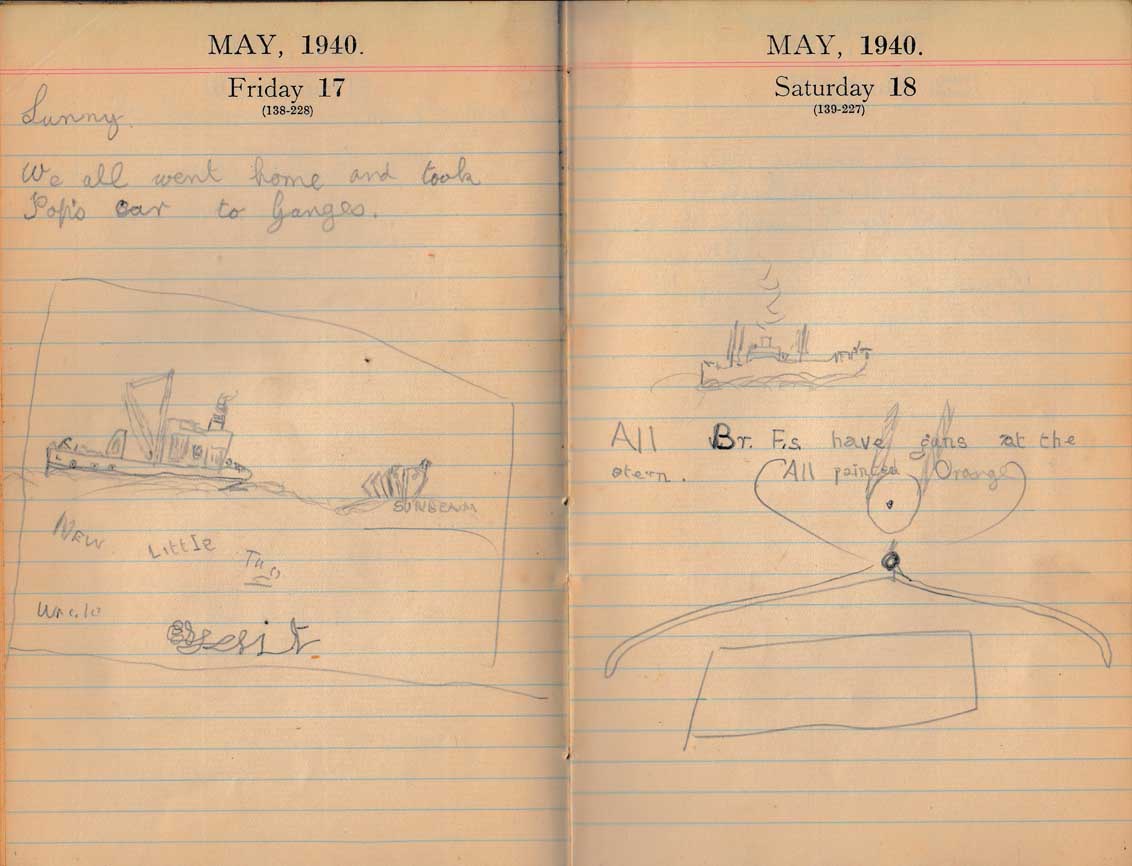 MAY, 1940.
Friday 17
(138-228)
Sunny.
We all went home and took
Pop's car to Ganges.
SUNBEAM
NEW
LittlE
Tug
MAY, 1940.
Saturday 18
(139-227)
All Br. F.s. have guns at the
stern.
All painted Orange